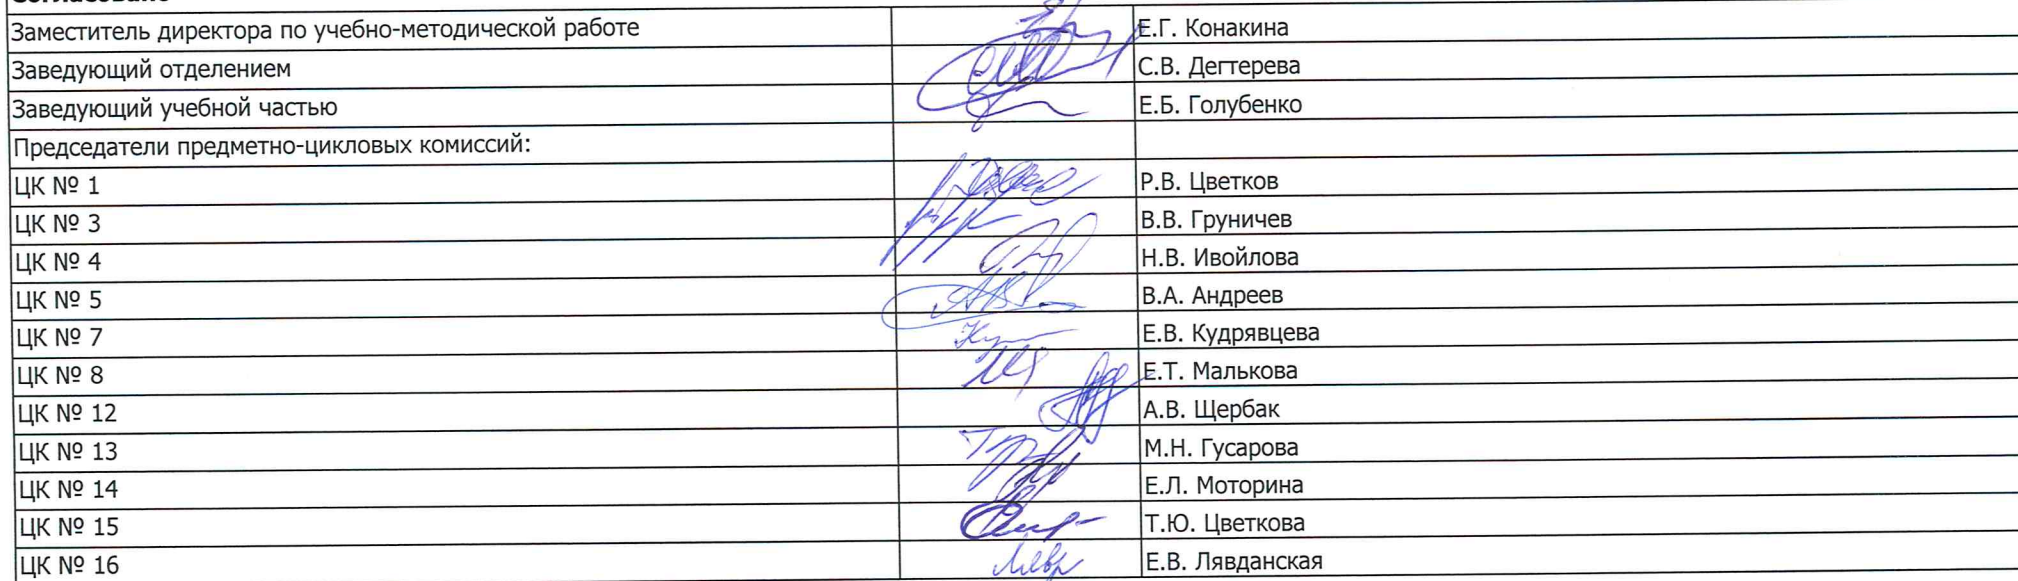 Согласовано
Заместитель директора по учебно-методической работе Е.Г. Конакина
Заведующий отделением С.В. Дегтерева
Заведующий учебной частью Е.Б. Голубенко
Председатели предметно-цикловых комиссий:
ЦК № 1 Р.В. Цветков
ЦК № 3 В.В. Груничев
ЦК № 4 Н.В. Ивойлова
ЦК № 5 В.А. Андреев
ЦК № 7 Е.В. Кудрявцева
ЦК № 8 Е.Т. Малькова
ЦК № 12 А.В. Щербак
ЦК № 13 М.Н. Гусарова
ЦК № 14 Е.Л. Моторина
ЦК № 15 Т.Ю. Цветкова
ЦК № 16 Е.В. Лявданская